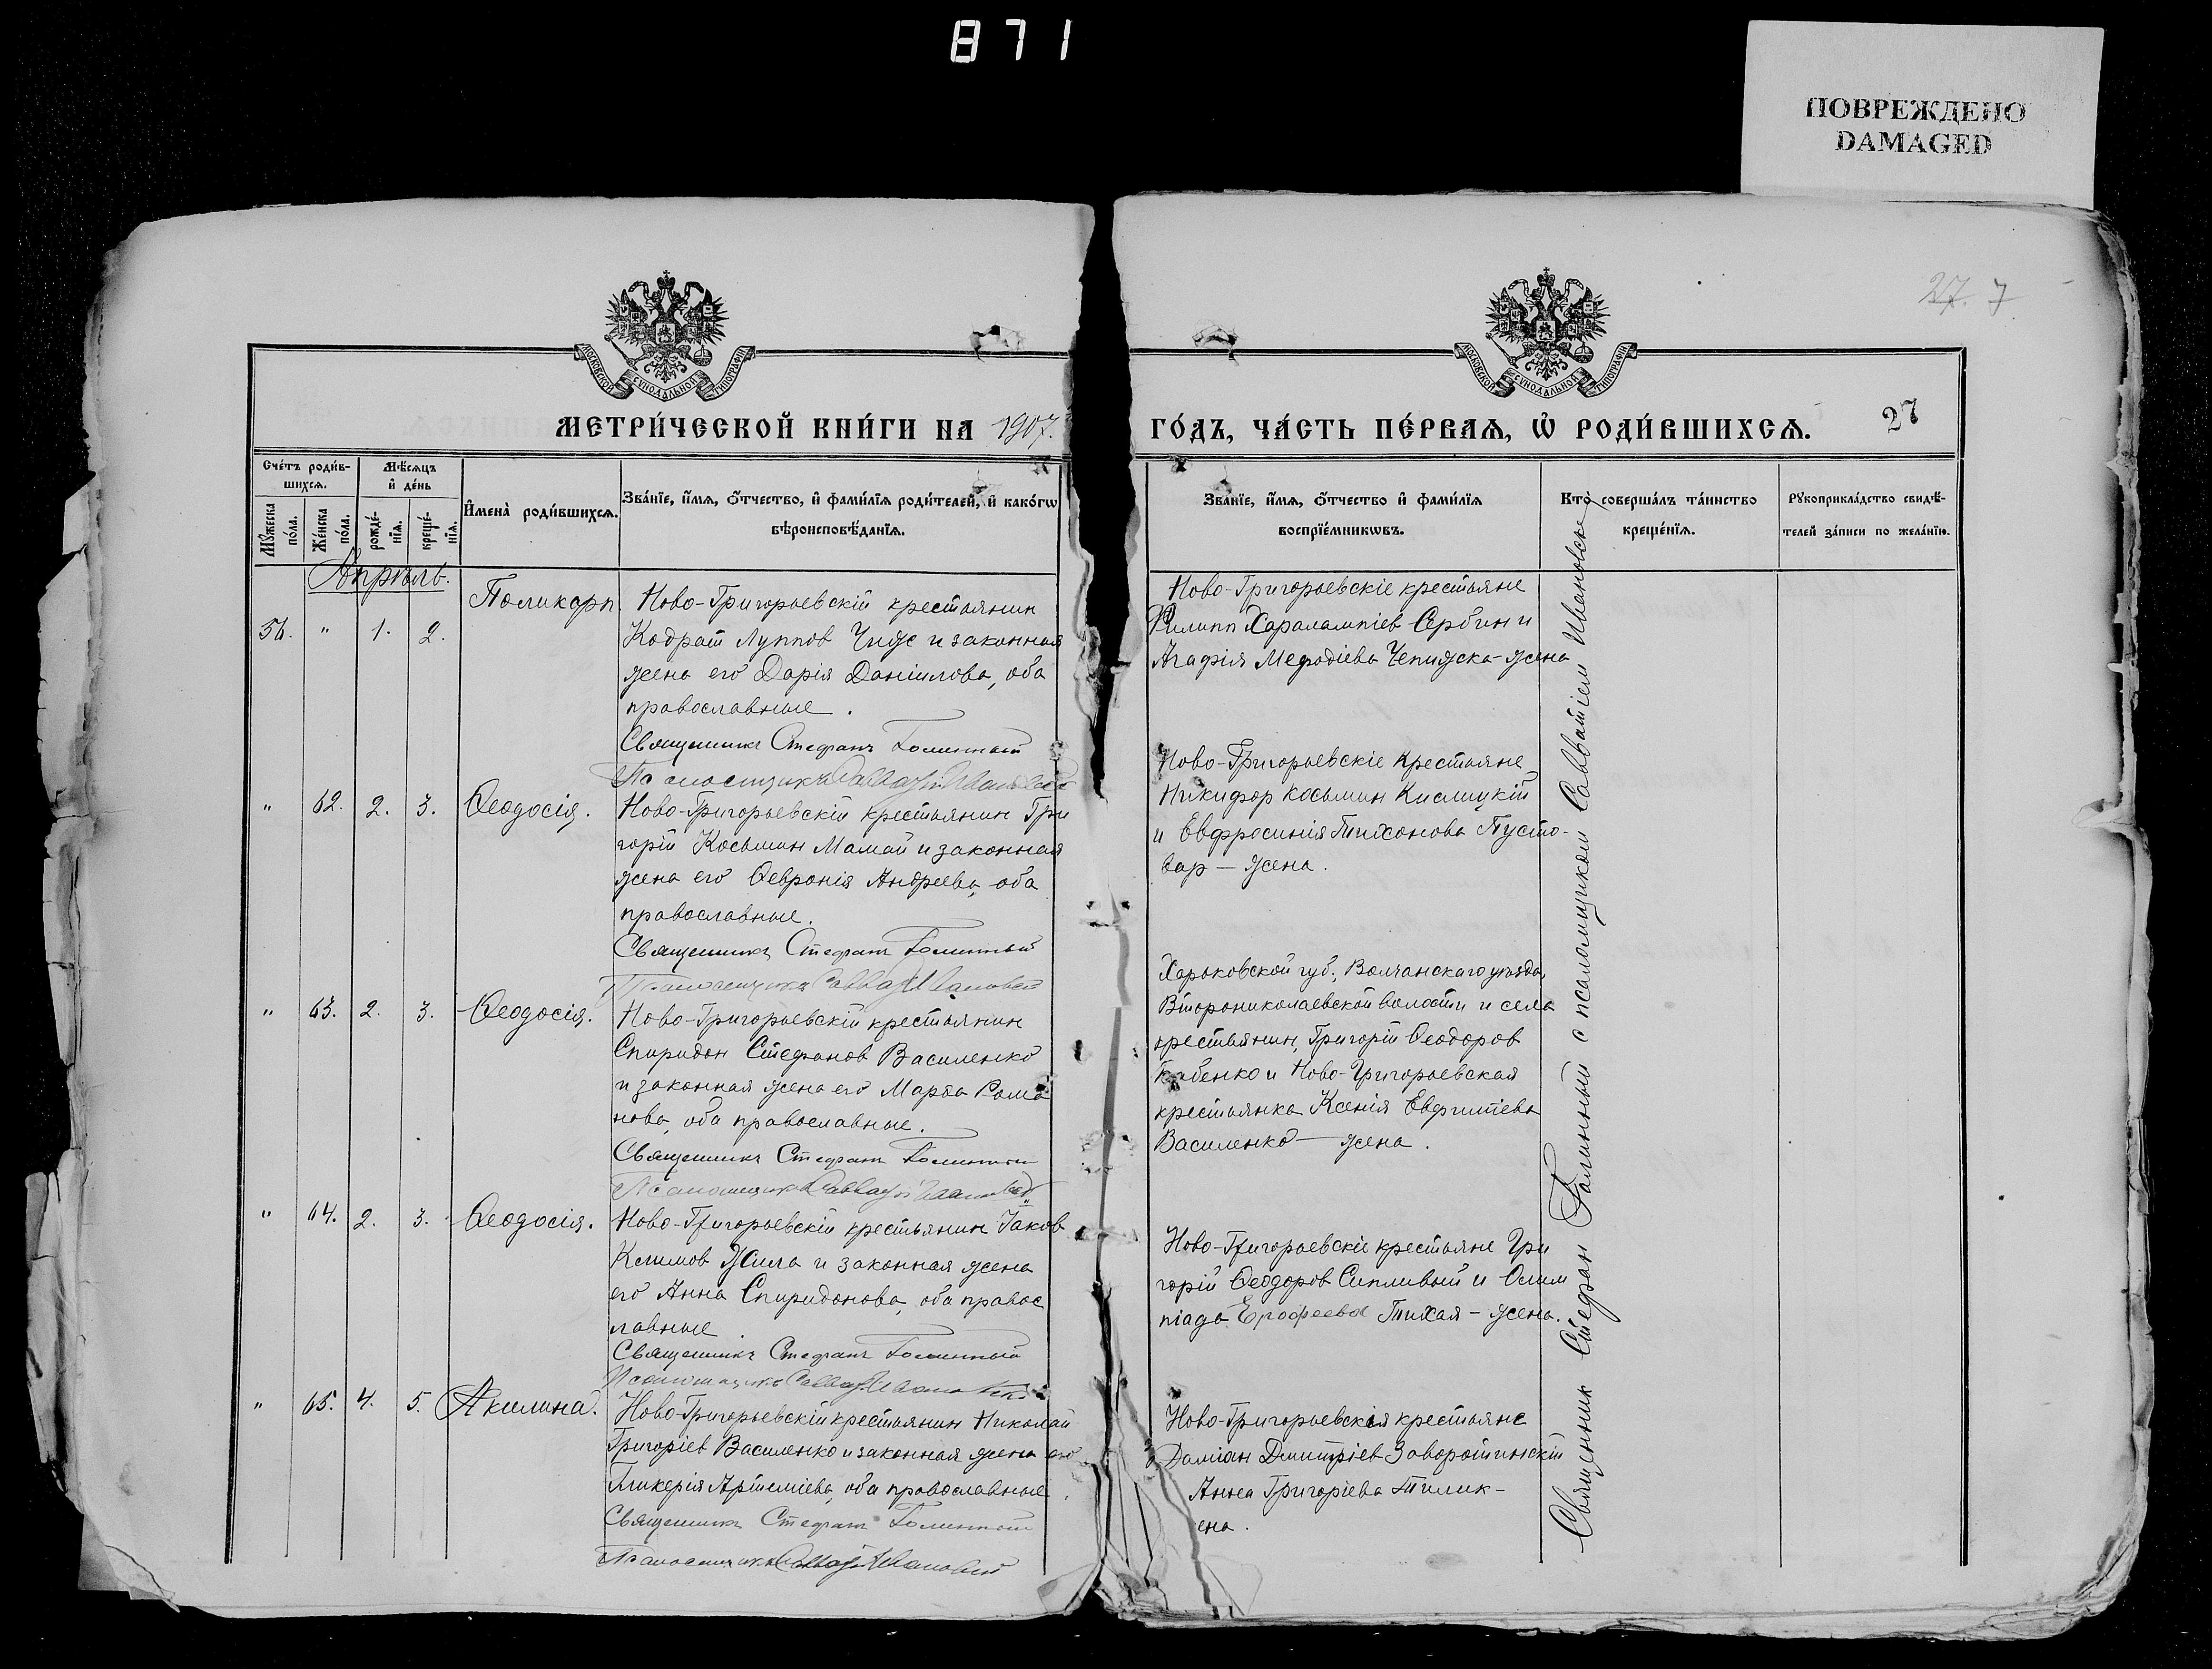 871
ПОВРЕЖДЕНО
DAMAGED
27. 7
МОСКОВСКОЙ СУНОДАЛЬНОЙ ТИПОГРАФІИ
МОСКОВСКОЙ СУНОДАЛЬНОЙ ТИПОГРАФІИ
МЕТРИ́ЧЕСКОЙ КНИ́ГИ НА 1907.
ГО́ДЪ, ЧА́СТЬ ПЕ́РВАЯ, Ѡ РОДИ́ВШИХСЯ.
27
Сче́тъ роди́в-
шихся.
Мѣ́сяцъ
и҆ де́нь
Мꙋ́жеска
по́ла.
Же́нска
по́ла.
рожде́-
нїя.
креще́-
нїя.
И҆мена̀ роди́вшихся.
Зва́нїе, и҆́мя, ѻ҆́тчество, и҆ фами́лїя роди́телей, и҆ како́гѡ
вѣроисповѣ́данїя.
Зва́нїе, и҆́мя, ѻ҆́тчество и҆ фами́лїя
воспрїе́мникѡвъ.
Кто̀ соверша́лъ та́инство
креще́нїя.
Рꙋкоприкла́дство свидѣ́-
телей за́писи по жела́нїю.
Апрѣль.
56. " 1. 2.
Поликарп.
Ново-Григорьевскій крестьянин
Кодрат Луппов Чиж и законная
жена его Дарія Даніилова, оба
православные.
Священникъ Стефанъ Голинный
Псаломщикъ Савватій Ивановскій
Ново-Григорьевскіе крестьяне
Филипп Харалампіев Сербин и
Агафія Мефодіева Чепижска-жена
" 62. 2. 3.
Ѳеодосія.
Ново-Григорьевскій крестьянин Гри
горій Косьмин Мамай и законная
жена его Ѳеврония Андреева, оба
православные.
Священникъ Стефанъ Голинный
Псаломщикъ Савватій Ивановскій
Ново-Григорьевскіе крестьяне
Никифор Косьмин Кислицкій
и Евфросинія Тихонова Пусто-
вар — жена.
" 63. 2. 3.
Ѳеодосія.
Ново-Григорьевскій крестьянин
Спиридон Стефанов Василенко
и законная жена его Марѳа Рома
нова, оба православные.
Священникъ Стефанъ Голинный
Псаломщикъ Савватій Ивановскій
Харьковской губ., Волчанскаго уѣзда,
Второниколаевской волости и села
крестьянин, Григорій Ѳеодоров
бенко и Ново-Григорьевская
крестьянка Ксенія Евфиміева
Василенко — жена.
" 64. 2. 3.
Ѳеодосія.
Ново-Григорьевскій крестьянин Іаков
Климов Жила и законная жена
его Анна Спиридонова, оба правос
лавные.
Священникъ Стефанъ Голинный
Псаломщикъ Савватій Ивановскій
Ново-Григорьевскіе крестьяне Гри
горій Ѳеодоров Сипливый и Олим
піада Ерофеева Тихая - жена.
" 65. 4. 5.
Акилина.
Ново-Григорьевскій крестьянин Николай
Григоріев Василенко и законная жена его
Гликерія Артеміева, оба православные.
Священникъ Стефанъ Голинный
Псаломщикъ Савватій Ивановскій
Ново-Григорьевскія крестьяне
Даміан Димитріев Заворотинскій
Анна Григоріева Тилик-
ена.
Священник Стефан Голинный с псаломщиком Савватіем Ивановск